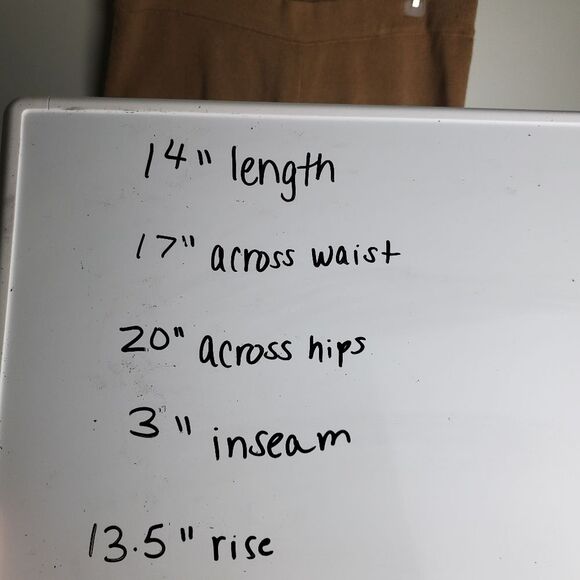 14" length
17" across waist
20" across hips
3" inseam
13.5" rise